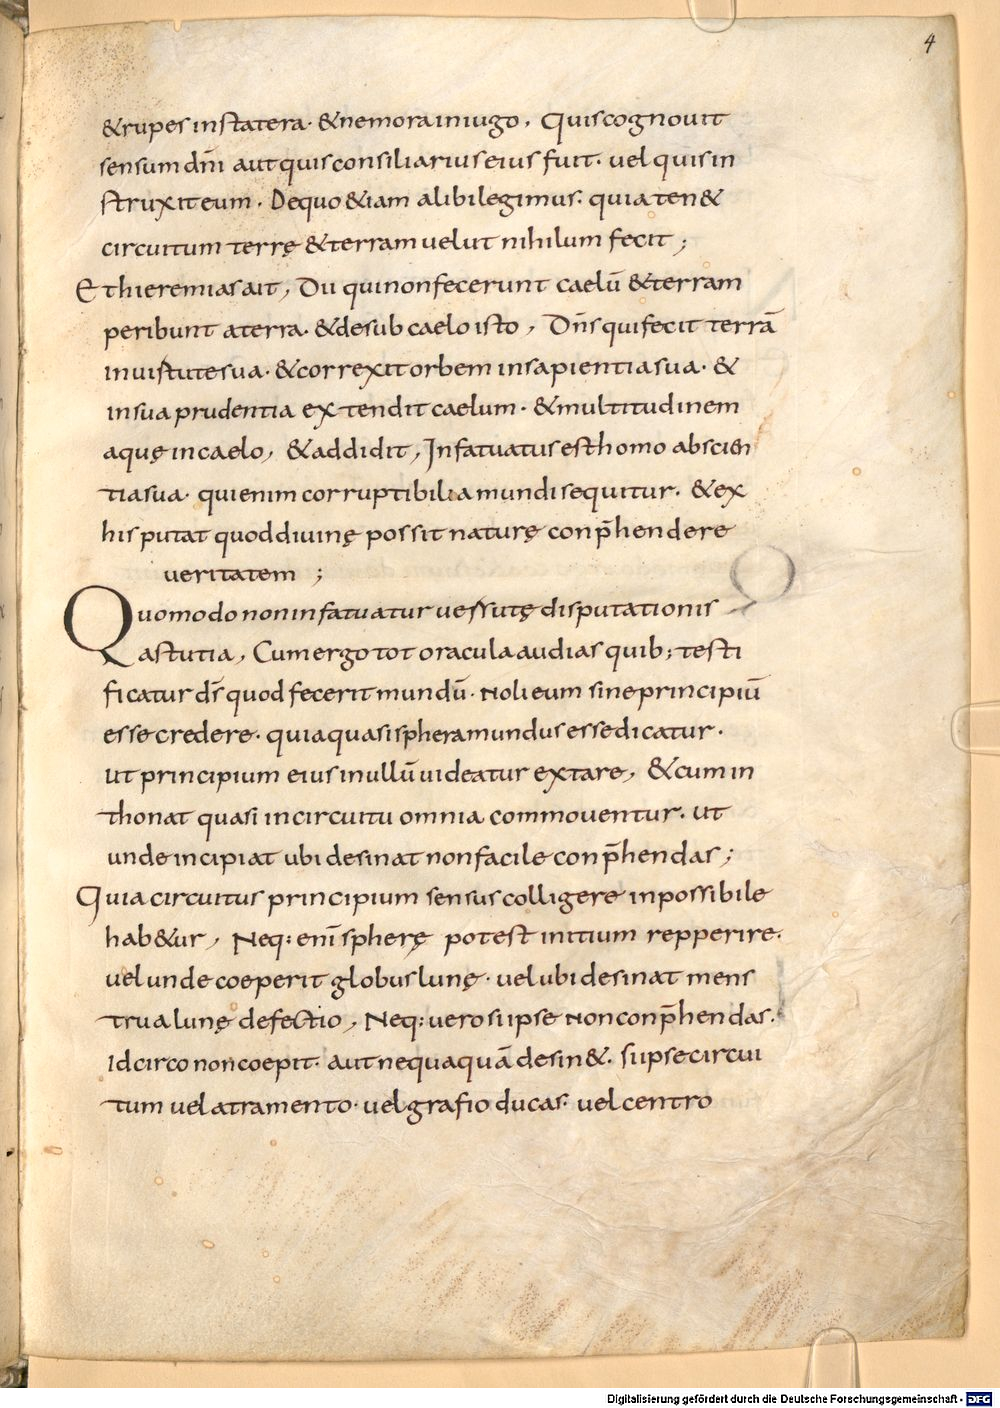 4
&rupes instatera. &nemora iniugo, Quis cognouit
sensum dn̄i aut quis consiliarius eius fuit. uel quis in
struxit eum. De quo &iam alibi legimus. quia ten&
circuitum terrę & terram uelut nihilum fecit;
Et hieremias ait, Dii qui non fecerunt caelū & terram
peribunt a terra. & de sub caelo isto, Dn̄s qui fecit terrā
in uirtute sua. & correxit orbem in sapientia sua. &
in sua prudentia extendit caelum. & multitudinem
aquę in caelo, & addidit, Infatuatus est homo ab scien
tia sua. qui enim corruptibilia mundi sequitur. & ex
his putat quod diuinę possit naturę conp̄hendere
ueritatem;
Quomodo non infatuatur uersutę disputationis
astutia, Cum ergo tot oracula audias quib; testi
ficatur ds̄ quod fecerit mundū. Noli eum sine principiū
esse credere. quia quasi sphera mundus esse dicatur.
ut principium eius in nullū uideatur extare, & cum in
thonat quasi in circuitu omnia commouentur. ut
unde incipiat ubi desinat non facile conp̄hendas;
Quia circuitus principium sensus colligere inpossibile
hab&ur, Neq: enī spherę potest initium repperire.
uel unde coeperit globus lunę. uel ubi desinat mens
trua lunę defectio, Neq: uero si ipse non conp̄hendas.
Idcirco non coepit. aut nequaquā desin&. si ipse circui
tum uel atramento. uel grafio ducas. uel centro
Digitalisierung gefördert durch die Deutsche Forschungsgemeinschaft - DFG